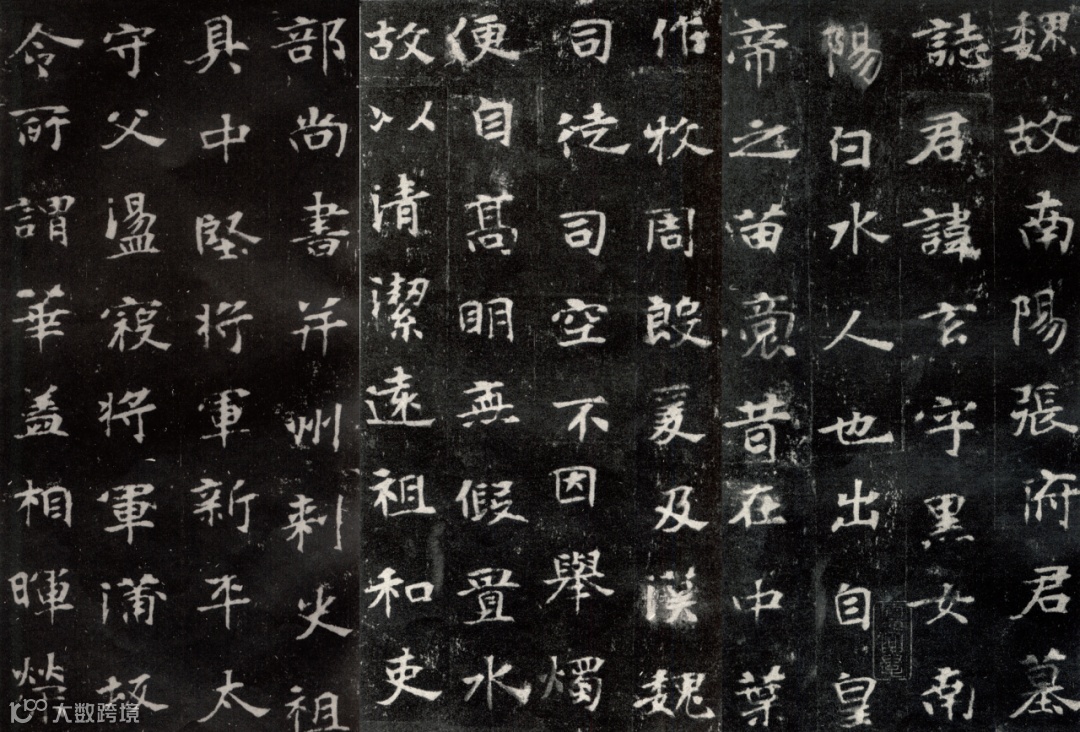 魏故南陽張府君墓
誌君諱玄字黑女南
陽白水人也出自皇
帝之苗裔昔在中葉
作牧周殷爰及漢魏
司徒司空不因舉燭
便自高明無假置水
故以清潔遠祖和吏
部尚書并州刺史祖
具中堅將軍新平太
守父盪寇將軍蒲坂
令所謂華蓋相暉榮
大数跨境